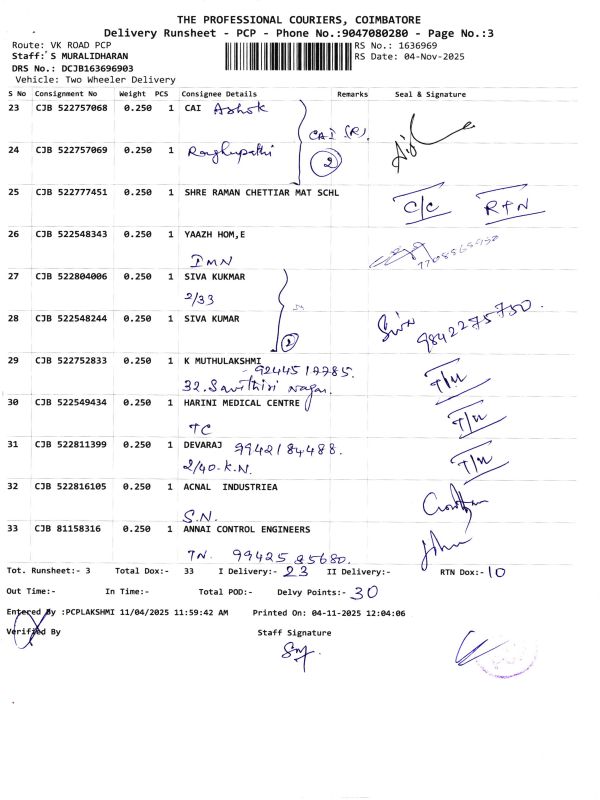 THE PROFESSIONAL COURIERS, COIMBATORE
Delivery Runsheet - PCP - Phone No.:9047080280 - Page No.:3
Route: VK ROAD PCP
RS No.: 1636969
Staff: S MURALIDHARAN
RS Date: 04-Nov-2025
DRS No.: DCJB163696903
Vehicle: Two Wheeler Delivery
S No Consignment No Weight PCS Consignee Details Remarks Seal & Signature
23 CJB 522757068 0.250 1 CAI Ashok
CAI (R).
24 CJB 522757069 0.250 1 Raghupathi
2
25 CJB 522777451 0.250 1 SHRE RAMAN CHETTIAR MAT SCHL
C/C RTN
26 CJB 522548343 0.250 1 YAAZH HOM,E
IMN
27 CJB 522804006 0.250 1 SIVA KUKMAR
2/33
28 CJB 522548244 0.250 1 SIVA KUMAR
Siva 9842275750.
2
29 CJB 522752833 0.250 1 K MUTHULAKSHMI
32. Savithiri Nagar. T/N
30 CJB 522549434 0.250 1 HARINI MEDICAL CENTRE
TC T/N
31 CJB 522811399 0.250 1 DEVARAJ 9942184488.
2/40-K.N. T/N
32 CJB 522816105 0.250 1 ACNAL INDUSTRIEA
S.N.
33 CJB 81158316 0.250 1 ANNAI CONTROL ENGINEERS
TN.
Tot. Runsheet:- 3 Total Dox:- 33 I Delivery:- 23 II Delivery:- RTN Dox:- 10
Out Time:- In Time:- Total POD:- Delvy Points:- 30
Entered By :PCPLAKSHMI 11/04/2025 11:59:42 AM Printed On: 04-11-2025 12:04:06
Verified By Staff Signature